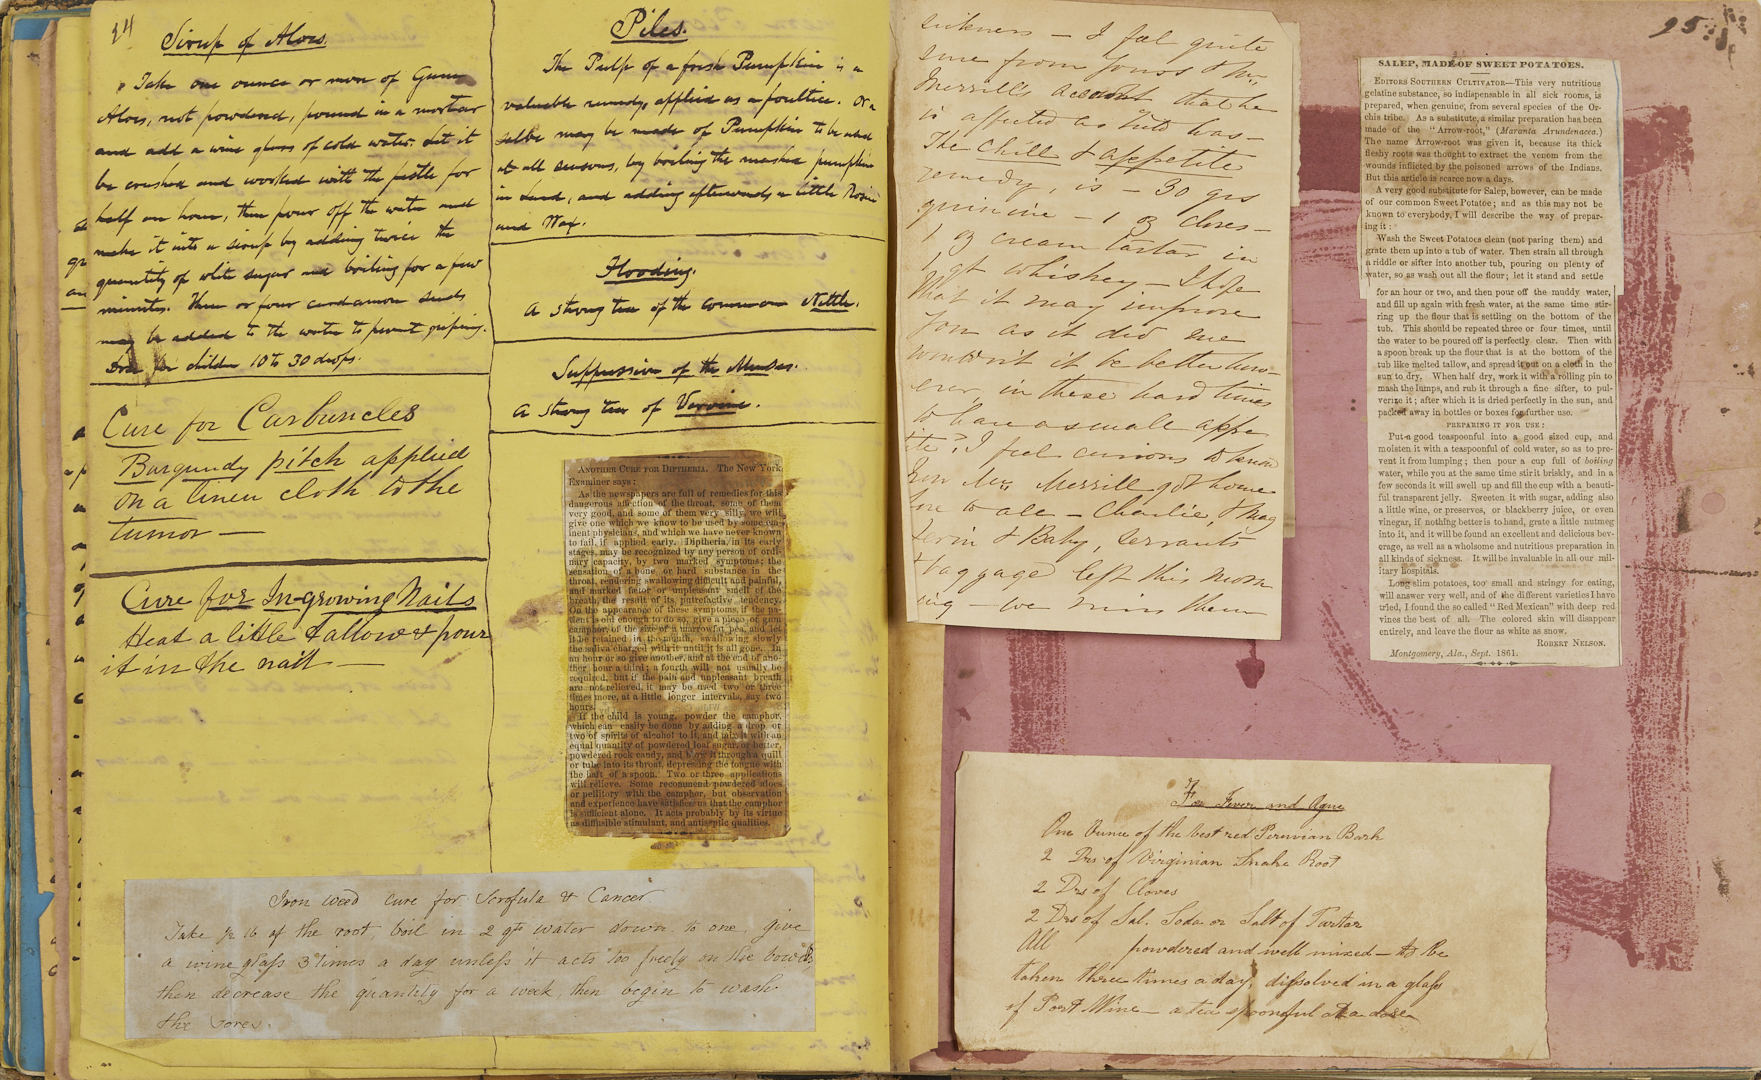 24
Sirup of Aloes.
Take one ounce or more of Gum
Aloes, not powdered, pound in a mortar
and add a wine glass of cold water. Let it
be crushed and worked with the pestle for
half an hour, then pour off the water and
make it into a sirup by adding twice the
quantity of white sugar and boiling for a few
minutes. Three or four cardamom seeds
may be added to the water to prevent griping.
Dose for children 10 to 30 drops.
Cure for Carbuncles
Burgundy pitch applied
on a linen cloth to the
tumor —
Cure for In-growing Nails
Heat a little tallow & pour
it in the nail —
Piles.
The Pulp of a fresh Pumpkin is a
valuable remedy, applied as a poultice. Or a
salve may be made of Pumpkin to be used
at all seasons, by boiling the mashed pumpkin
in Lard, and adding afterwards a little Rosin
and Wax.
Flooding.
A strong tea of the common Nettle.
Suppression of the Menses.
A strong tea of Vervine.
ANOTHER CURE FOR DIPTHERIA. The New York
Examiner says:
As the newspapers are full of remedies for this
dangerous affection of the throat, some of them
very good, and some of them very silly, we will
give one which we know to be used by some em-
inent physicians, and which we have never known
to fail, if applied early. Diptheria, in its early
stages, may be recognized by any person of ordi-
nary capacity, by two marked symptoms; the
sensation of a bone or hard substance in the
throat, rendering swallowing difficult and painful,
and marked fœtor or unpleasant smell of the
breath, the result of its putrefactive tendency.
On the appearance of these symptoms, if the pa-
tient is old enough to do so, give a piece of gum
camphor, of the size of a marrowfat pea, and let
it be retained in the mouth, swallowing slowly
the saliva charged with it until it is all gone. In
an hour or so give another, and at the end of ano-
ther hour a third; a fourth will not usually be
required, but if the pain and unpleasant breath
are not relieved, it may be used two or three
times more, at a little longer intervals, say two
hours.
If the child is young, powder the camphor,
which can easily be done by adding a drop or
two of spirits of alcohol to it, and mix it with an
equal quantity of powdered loaf sugar, or better,
powdered rock candy, and blow it through a quill
or tube into its throat, depressing the tongue with
the haft of a spoon. Two or three applications
will relieve. Some recommend powdered aloes
or pellitory with the camphor, but observation
and experience have satisfied us that the camphor
is sufficient alone. It acts probably by its virtue
as diffusible stimulant, and antiseptic qualities.
Iron weed cure for Scrofula & Cancer
Take ½ lb of the root, boil in 2 qts water down to one, give
a wine glass 3 times a day unless it acts too freely on the bowels,
then decrease the quantity for a week, then begin to wash
the sores.
25
sickness — I feel quite
sure from yours & Mr.
Merrill's account that he
is affected as          was —
The chill & appetite
remedy, is — 30 grs
quinine — 1 oz cloves —
1 oz cream tartar in
1 qt whiskey — I hope
that it may improve
you as it did me
wouldn't it be better how-
ever, in these hard times
to have a small appe
tite? I feel curious to know
how Mrs Merrill got home
      to all — Charlie, & Mag
       & Baby, servants
& baggage left this morn
ing — we miss them
SALEP, MADE OF SWEET POTATOES.
EDITORS SOUTHERN CULTIVATOR—This very nutritious
gelatine substance, so indispensable in all sick rooms, is
prepared, when genuine, from several species of the Or-
chis tribe. As a substitute, a similar preparation has been
made of the "Arrow-root," (Maranta Arundenacea.)
The name Arrow-root was given it, because its thick
fleshy roots was thought to extract the venom from the
wounds inflicted by the poisoned arrows of the Indians.
But this article is scarce now a days.
A very good substitute for Salep, however, can be made
of our common Sweet Potatoe; and as this may not be
known to everybody, I will describe the way of prepar-
ing it:
Wash the Sweet Potatoes clean (not paring them) and
grate them up into a tub of water. Then strain all through
a riddle or sifter into another tub, pouring on plenty of
water, so as wash out all the flour; let it stand and settle
for an hour or two, and then pour off the muddy water,
and fill up again with fresh water, at the same time stir-
ring up the flour that is settling on the bottom of the
tub. This should be repeated three or four times, until
the water to be poured off is perfectly clear. Then with
a spoon break up the flour that is at the bottom of the
tub like melted tallow, and spread it out on a cloth in the
sun to dry. When half dry, work it with a rolling pin to
mash the lumps, and rub it through a fine sifter, to pul-
verize it; after which it is dried perfectly in the sun, and
packed away in bottles or boxes for further use.
PREPARING IT FOR USE:
Put a good teaspoonful into a good sized cup, and
moisten it with a teaspoonful of cold water, so as to pre-
vent it from lumping; then pour a cup full of boiling
water, while you at the same time stir it briskly, and in a
few seconds it will swell up and fill the cup with a beauti-
ful transparent jelly. Sweeten it with sugar, adding also
a little wine, or preserves, or blackberry juice, or even
vinegar, if nothing better is to hand, grate a little nutmeg
into it, and it will be found an excellent and delicious bev-
erage, as well as a wholesome and nutritious preparation in
all kinds of sickness. It will be invaluable in all our mil-
itary hospitals.
Long slim potatoes, too small and stringy for eating,
will answer very well, and of the different varieties I have
tried, I found the so called "Red Mexican" with deep red
vines the best of all. The colored skin will disappear
entirely, and leave the flour as white as snow.
ROBERT NELSON.
Montgomery, Ala., Sept. 1861.
For Fever and Ague
One Ounce of the best red Peruvian Bark
2 Drs of Virginian Snake Root
2 Drs of Cloves
2 Drs of Sal. Soda or Salt of Tartar
All powdered and well mixed — to be
taken three times a day, dissolved in a glass
of Port Wine — a tea spoonful at a dose